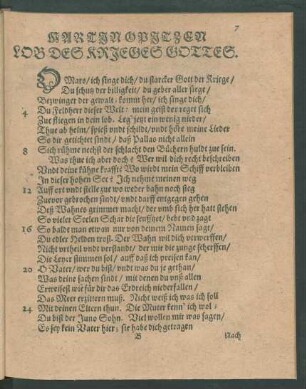 7
MARTIN OPITZEN
LOB DES KRIEGES GOTTES.
O Mars/ ich singe dich/ du starcker Gott der Kriege/
Du schutz der billigkeit/ du geber aller siege/
Bezwinger der gewalt: komm her/ ich singe dich/
4 Du Feldherr dieser Welt: mein geist der reget sich
Zur stiegen in dein lob. Leg' jetzt ein wenig nieder/
Thue ab helm/ spieß vnd schildt/ vnd höre meine Lieder
So dir gerichtet sindt/ daß Pallas nicht allein
8 Sich rühme nechst der schlacht den Büchern huldt zue sein.
Was thue ich aber doch? Wer wil dich recht beschreiben
Vndt deine kühne krafft? Wo wirdt mein Schiff verbleiben
In dieser hohen See? Ich nehme meinen weg
12 Auff ort vndt stelle zue wo weder bahn noch steg
Zuevor gebrochen sindt/ vndt darff entgegen gehen
Deß Wahnes grimmer macht/ der vmb sich her hatt stehen
So vieler Seelen Schar die seufftzet/ bebt vnd zagt
16 So baldt man etwan nur von deinem Namen sagt/
Du edler Helden muß. Der Wahn wil dich verwerffen/
Nicht vrtheil vndt verstandt/ der mir die zunge scherffen/
Die Leyer stimmen sol/ auff daß ich preisen kan/
20 O Vater/ wer du bist/ vnd was du je gethan/
Was deine sachen sindt/ mit denen du vns allen
Erweisest wie für dir das Erdreich niederfallen/
Das Meer erzittern muß. Nicht weiß ich was ich soll
24 Mit deinen Eltern thun. Die Muter kenn' ich wol:
Du bist der Juno Sohn. Viel wollen mit was sagen/
Es sey kein Vater hier; sie habe dich getragen
B Nach